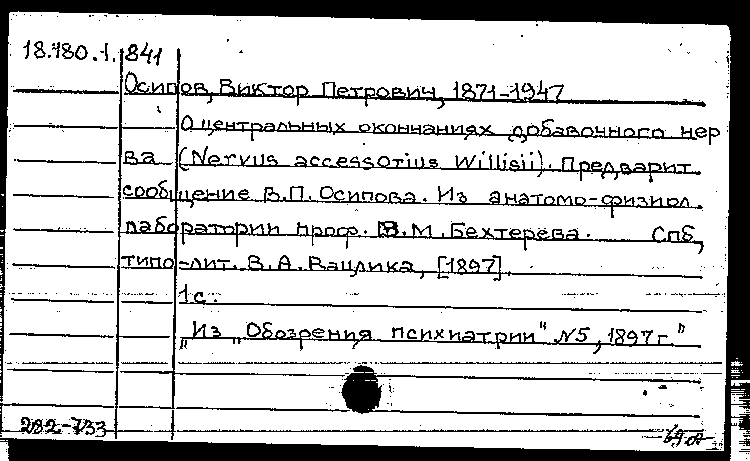 18.180.1.841
Осипов, Виктор Петрович, 1871-1947
О центральных окончаниях добавочного нер
ва (Nervus accessorius Willisii). Предварит.
сообщение В.П. Осипова. Из анатомо-физиол.
лаборатории проф. В.М. Бехтерева. Спб,
типо-лит. В.А. Вацлика, [1897].
1 с.
„Из „Обозрения психиатрии" №5, 1897 г."
282-733